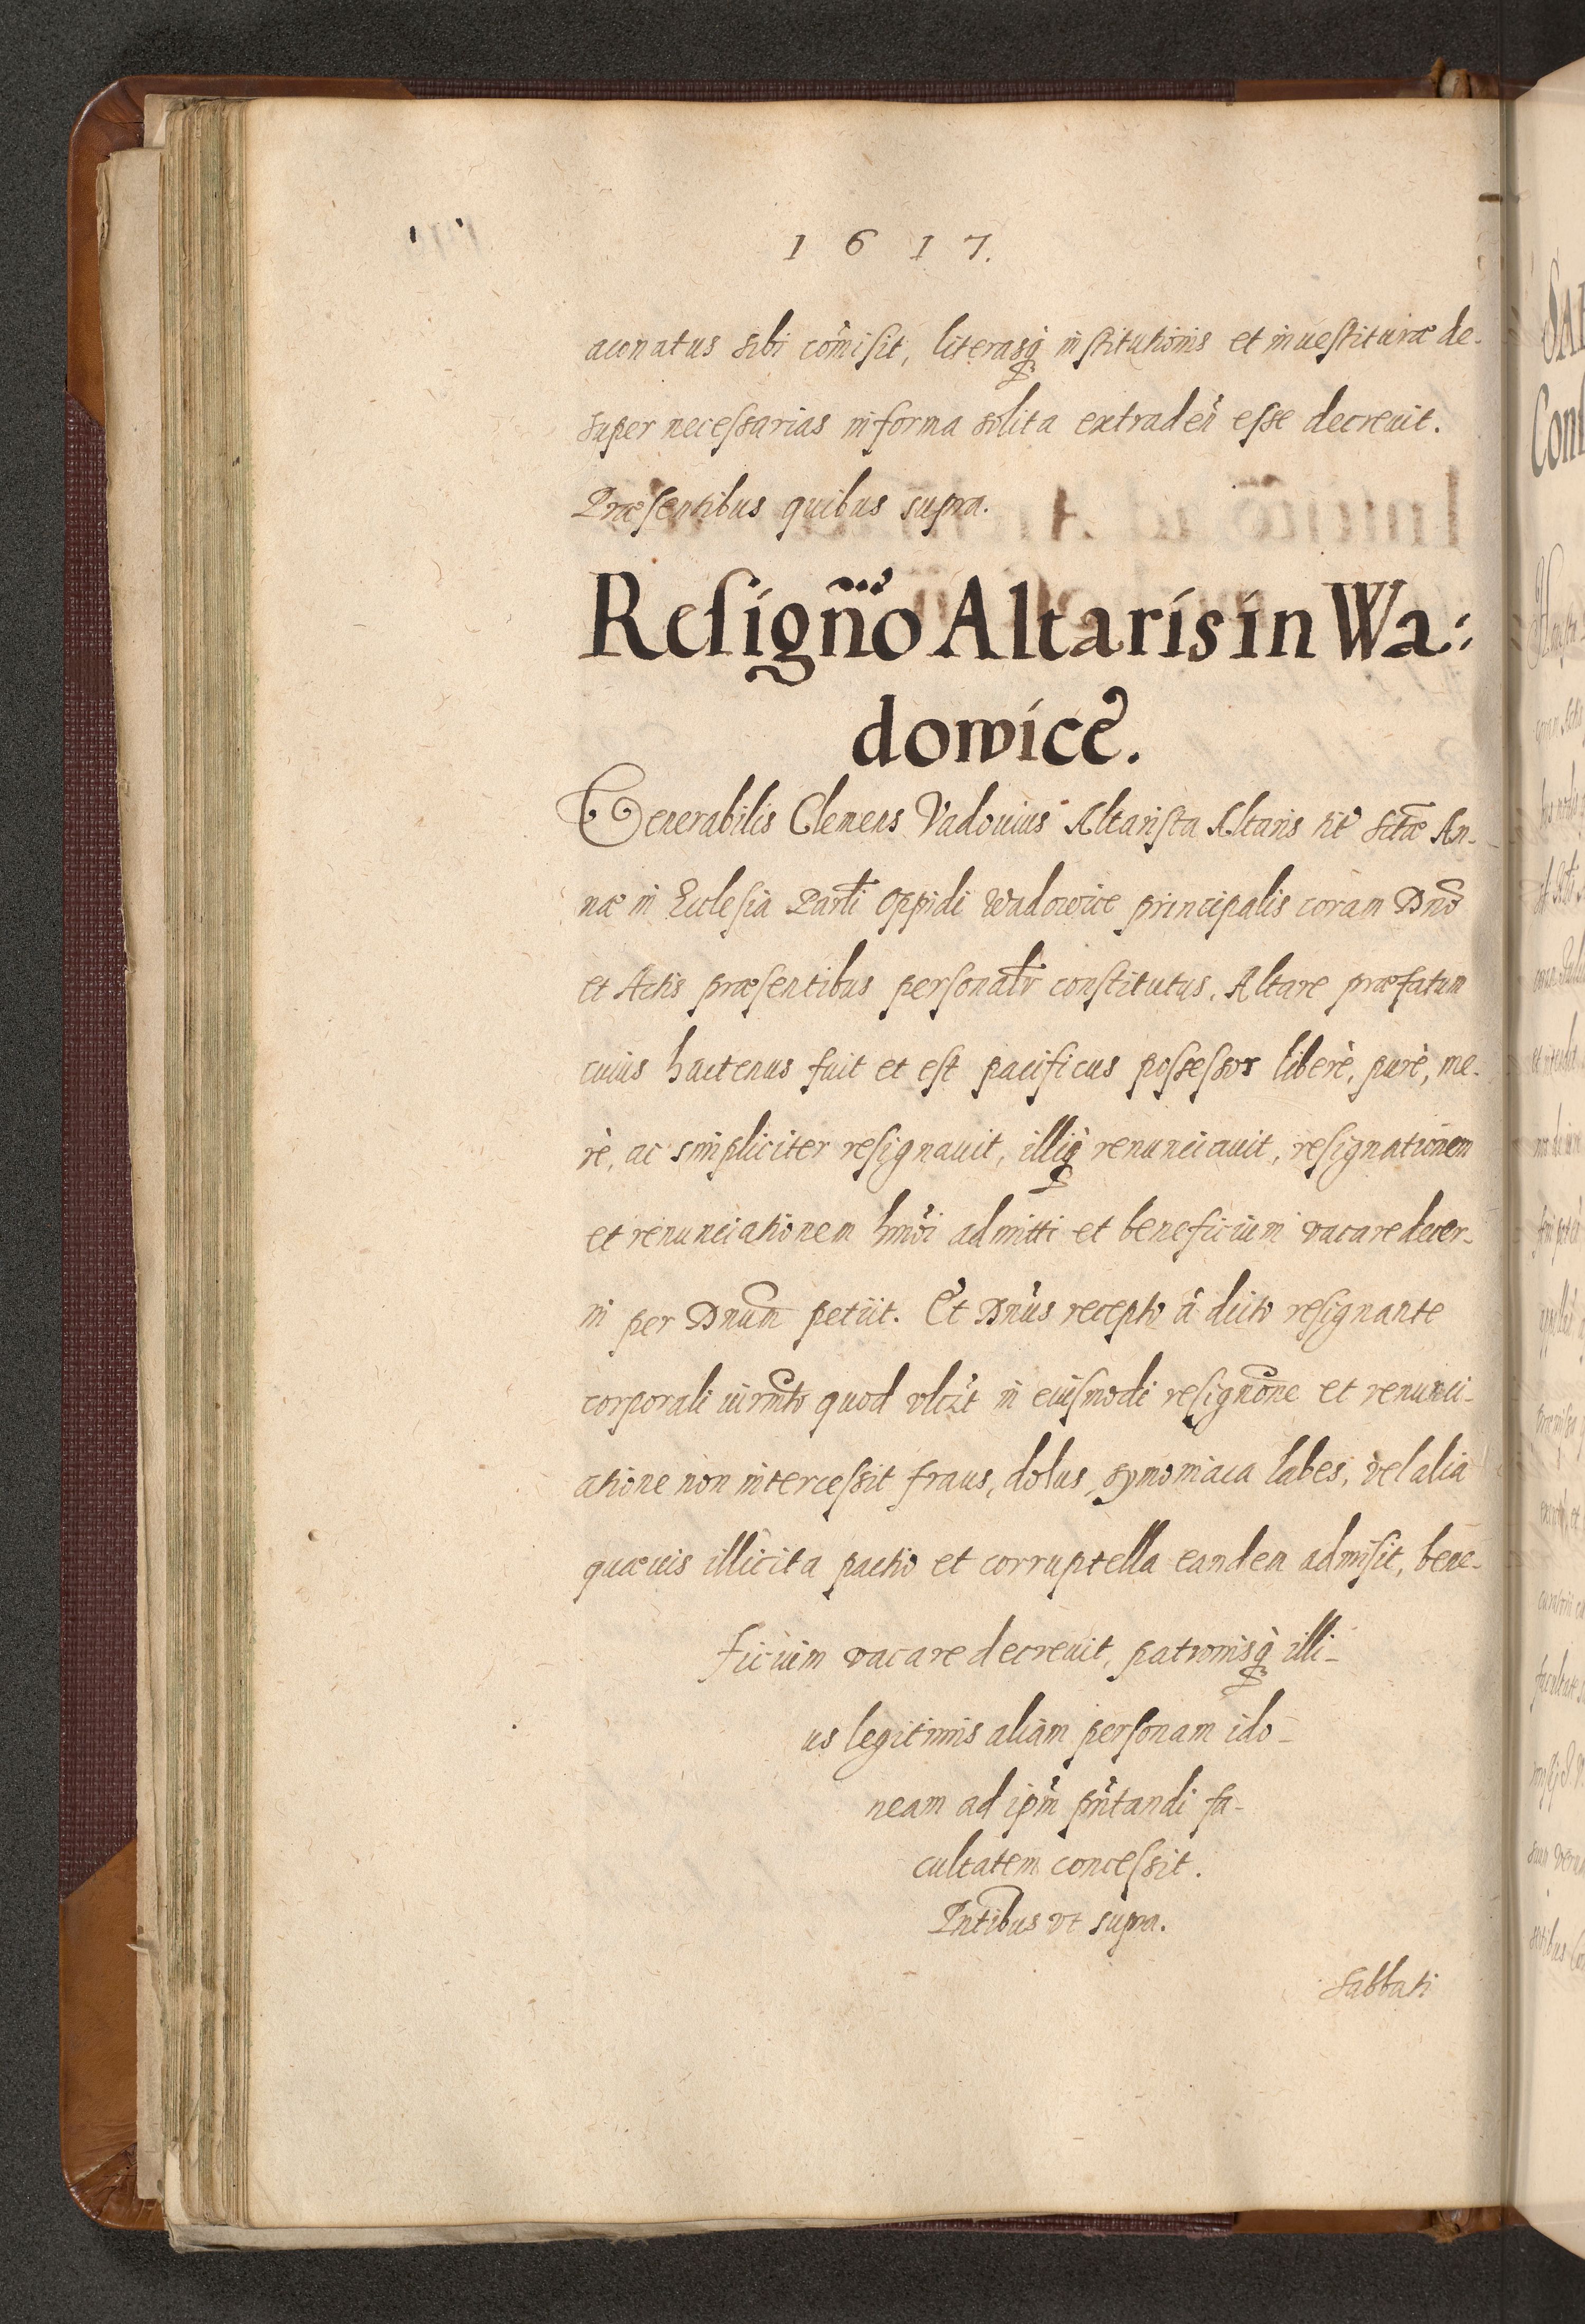 1617.
aconatus sibi com̃isit, literasq̃ institutionis et inuestituræ de-
super necessarias in forma solita extradeñ esse decreuit.
Præsentibus quibus supra.
Resign̄o Altaris in Wa:
dowice.
Venerabilis Clemens Vadouius Altarista Altaris tit̃ sctæ An-
næ in Ecclesia Parāli Oppidi Wadowice principalis coram Dn̄o
et Actis præsentibus personalr̃ constitutus, Altare præfatum
cuius hactenus fuit et est pacificus possessor liberè, purè, me-
rè, ac simpliciter resignauit, illiq̃ renunciauit, resignationem
et renunciationem hm̃oi admitti et beneficium vacare decer-
ni per Dnum̄ petiit. Et Dn̄us recepto à dicto resignante
corporali iurm̃to quod vlc̃zt in eiusmodi resign̄one et renunci-
atione non intercessit fraus, dolus, symoniaca labes, vel alia
quæuis illicita pactio et corruptella eandem admisit, bene-
ficium vacare decreuit, patronisq̃ illi-
us legitimis aliam personam ido-
neam ad ip̃m pn̄tandi fa-
cultatem concessit.
Pn̄tibus vt supra.
Sabbati